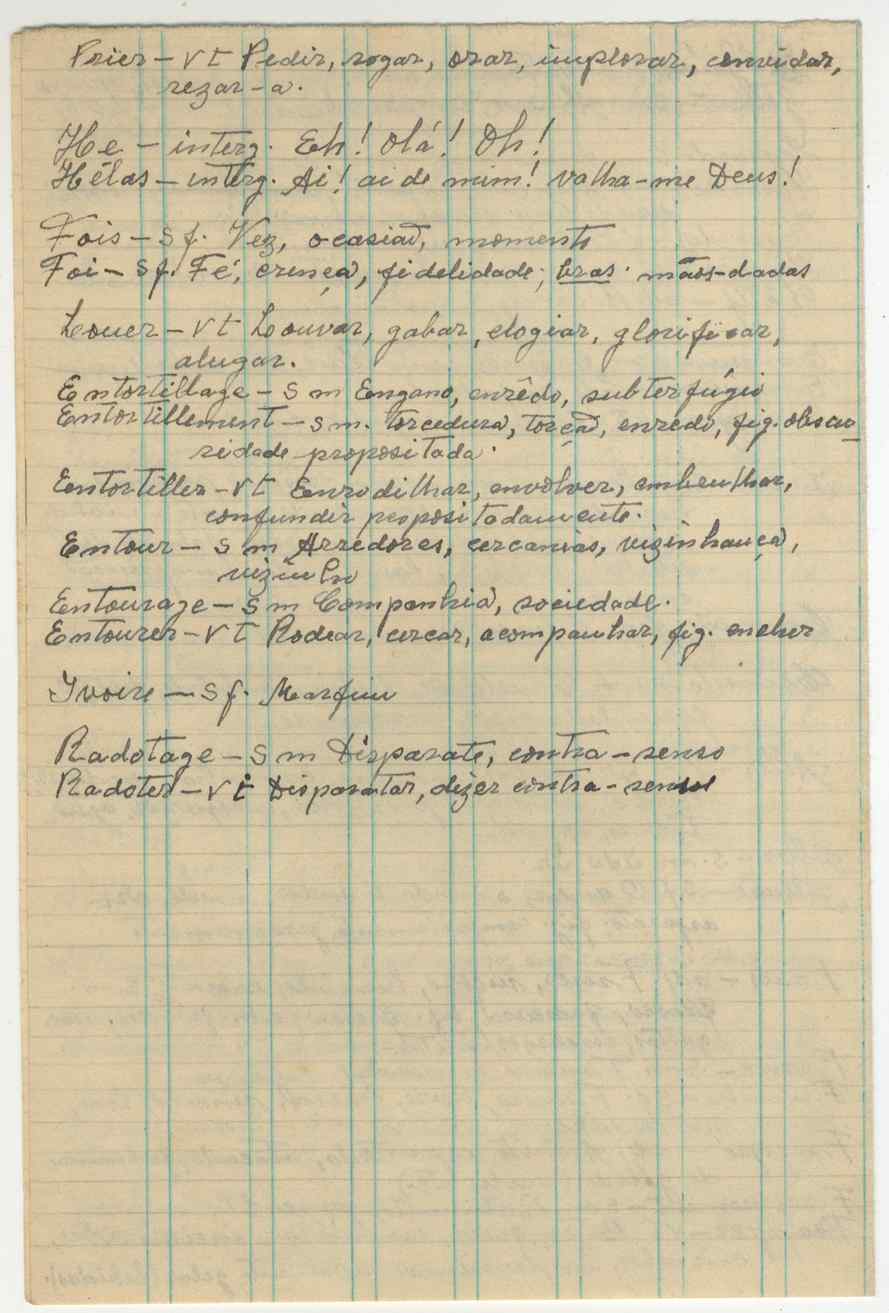 Prier - vt Pedir, rogar, orar, implorar, convidar,
rezar-a.
He - interg. Eh! Olá! Oh!
Hélas - interg. Ai! ai de mim! valha-me Deus!
Fois - sf. Vez, ocasião, momento
Foi - sf. Fé, crença, fidelidade; bras. mãos-dadas
Louer - vt Louvar, gabar, elogiar, glorificar,
alugar.
Entortillage - sm Engano, enrêdo, subterfúgio
Entortillement - sm. torcedura, torção, enredo, fig. obscu_
ridade propositada.
Entortiller - vt Enrodilhar, envolver, embrulhar,
confundir propositadamente.
Entour - sm Arredores, cercanias, vizinhança,
vizinho
Entourage - sm Companhia, sociedade.
Entourer - vt Rodear, cercar, acompanhar, fig. encher
Ivoire - sf. Marfim
Radotage - sm Disparate, contra-senso
Radoter - vt Disparatar, dizer contra-senso